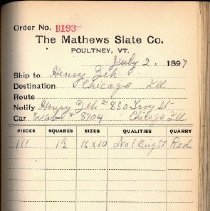 Order No. B193
The Mathews Slate Co.
POULTNEY, VT.
July 2. 1897
Ship to Henry Zeh
Destination Chicago Ill
Route
Notify Henry Zeh # 830 Troy St
Car # 8104 Chicago Ill
PIECES SQUARES SIZES QUALITIES QUARRY
111 1½ 16x10 No 1 Bright Red